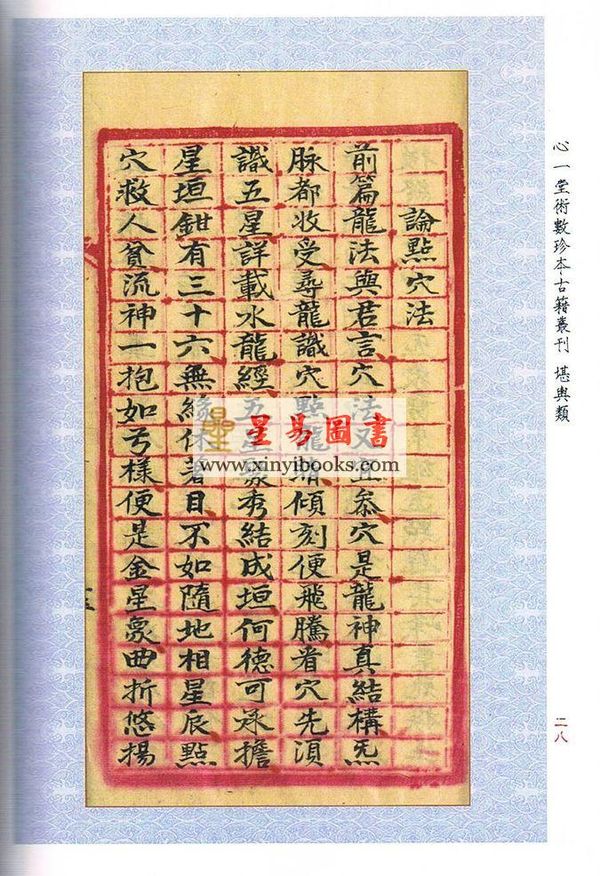 心一堂術數珍本·古籍叢刊 堪輿類
二八
論點穴法
前篇龍法與君言穴法又叅穴是龍神真結構炁
脉都收受尋龍識穴點龍睛傾刻便飛騰着穴先湏
識五星詳載水龍經五星秀結成垣何德可承擔
星垣鉗有三十六無緣休著目不如隨地相星辰點
穴救人貧流神一抱如弓樣便是金星象曲折悠揚
星易圖書
www.xinyibooks.com